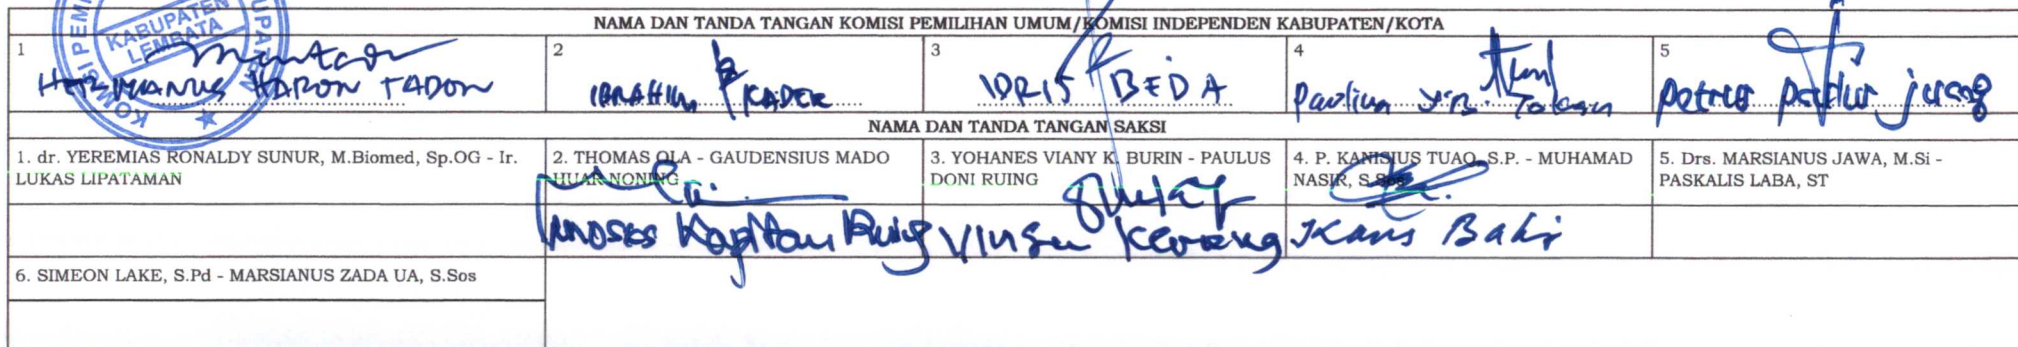 NAMA DAN TANDA TANGAN KOMISI PEMILIHAN UMUM/KOMISI INDEPENDEN KABUPATEN/KOTA
1 2 3 4 5
KABUPATEN
LEMBATA
HERMANUS HARON TADON
IBRAHIM KADER
IDRIS BEDA
Paulina Y.B. Tokan
Petrus Payong
NAMA DAN TANDA TANGAN SAKSI
1. dr. YEREMIAS RONALDY SUNUR, M.Biomed, Sp.OG - Ir.
LUKAS LIPATAMAN
2. THOMAS OLA - GAUDENSIUS MADO
HUAR NONING
3. YOHANES VIANY K. BURIN - PAULUS
DONI RUING
4. P. KANISIUS TUAQ, S.P. - MUHAMAD
NASIR, S.Sos
5. Drs. MARSIANUS JAWA, M.Si -
PASKALIS LABA, ST
Moses Kapitan Ruing
Kans Bali
6. SIMEON LAKE, S.Pd - MARSIANUS ZADA UA, S.Sos